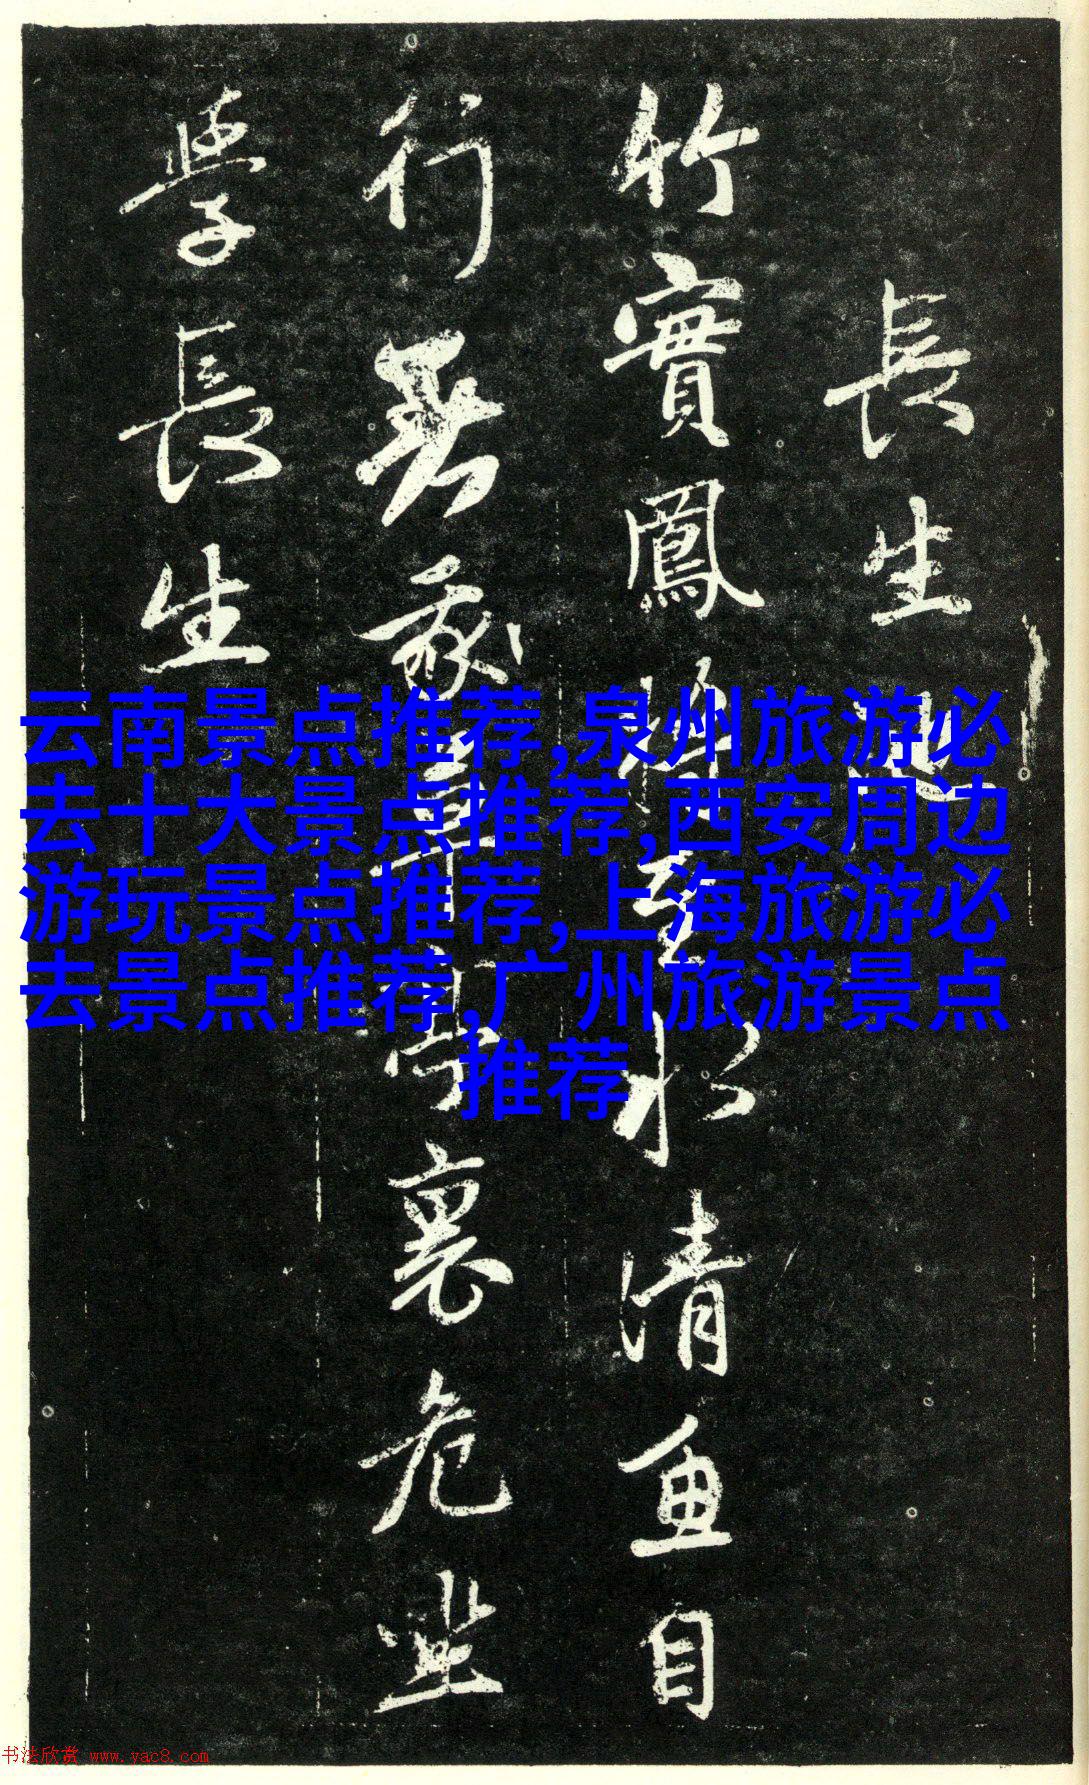 云南景点推荐,泉州旅游必
去十大景点推荐,西安周边
游玩景点推荐,上海旅游必
去景点推荐,广州旅游景点
推荐
長生
竹實鳳將至水清魚自
行裏危坐
學長生
书法欣赏 www.yac8.com